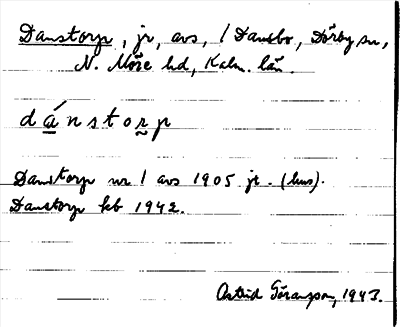 Danstorp, jr, avs, / Dansbo, Dörby sn,
N. Möre hd, Kalm. län.
dánstorp
Danstorp nr 1 avs 1905 jr. (hus).
Danstorp kb 1942.
Astrid Göransson, 1943.